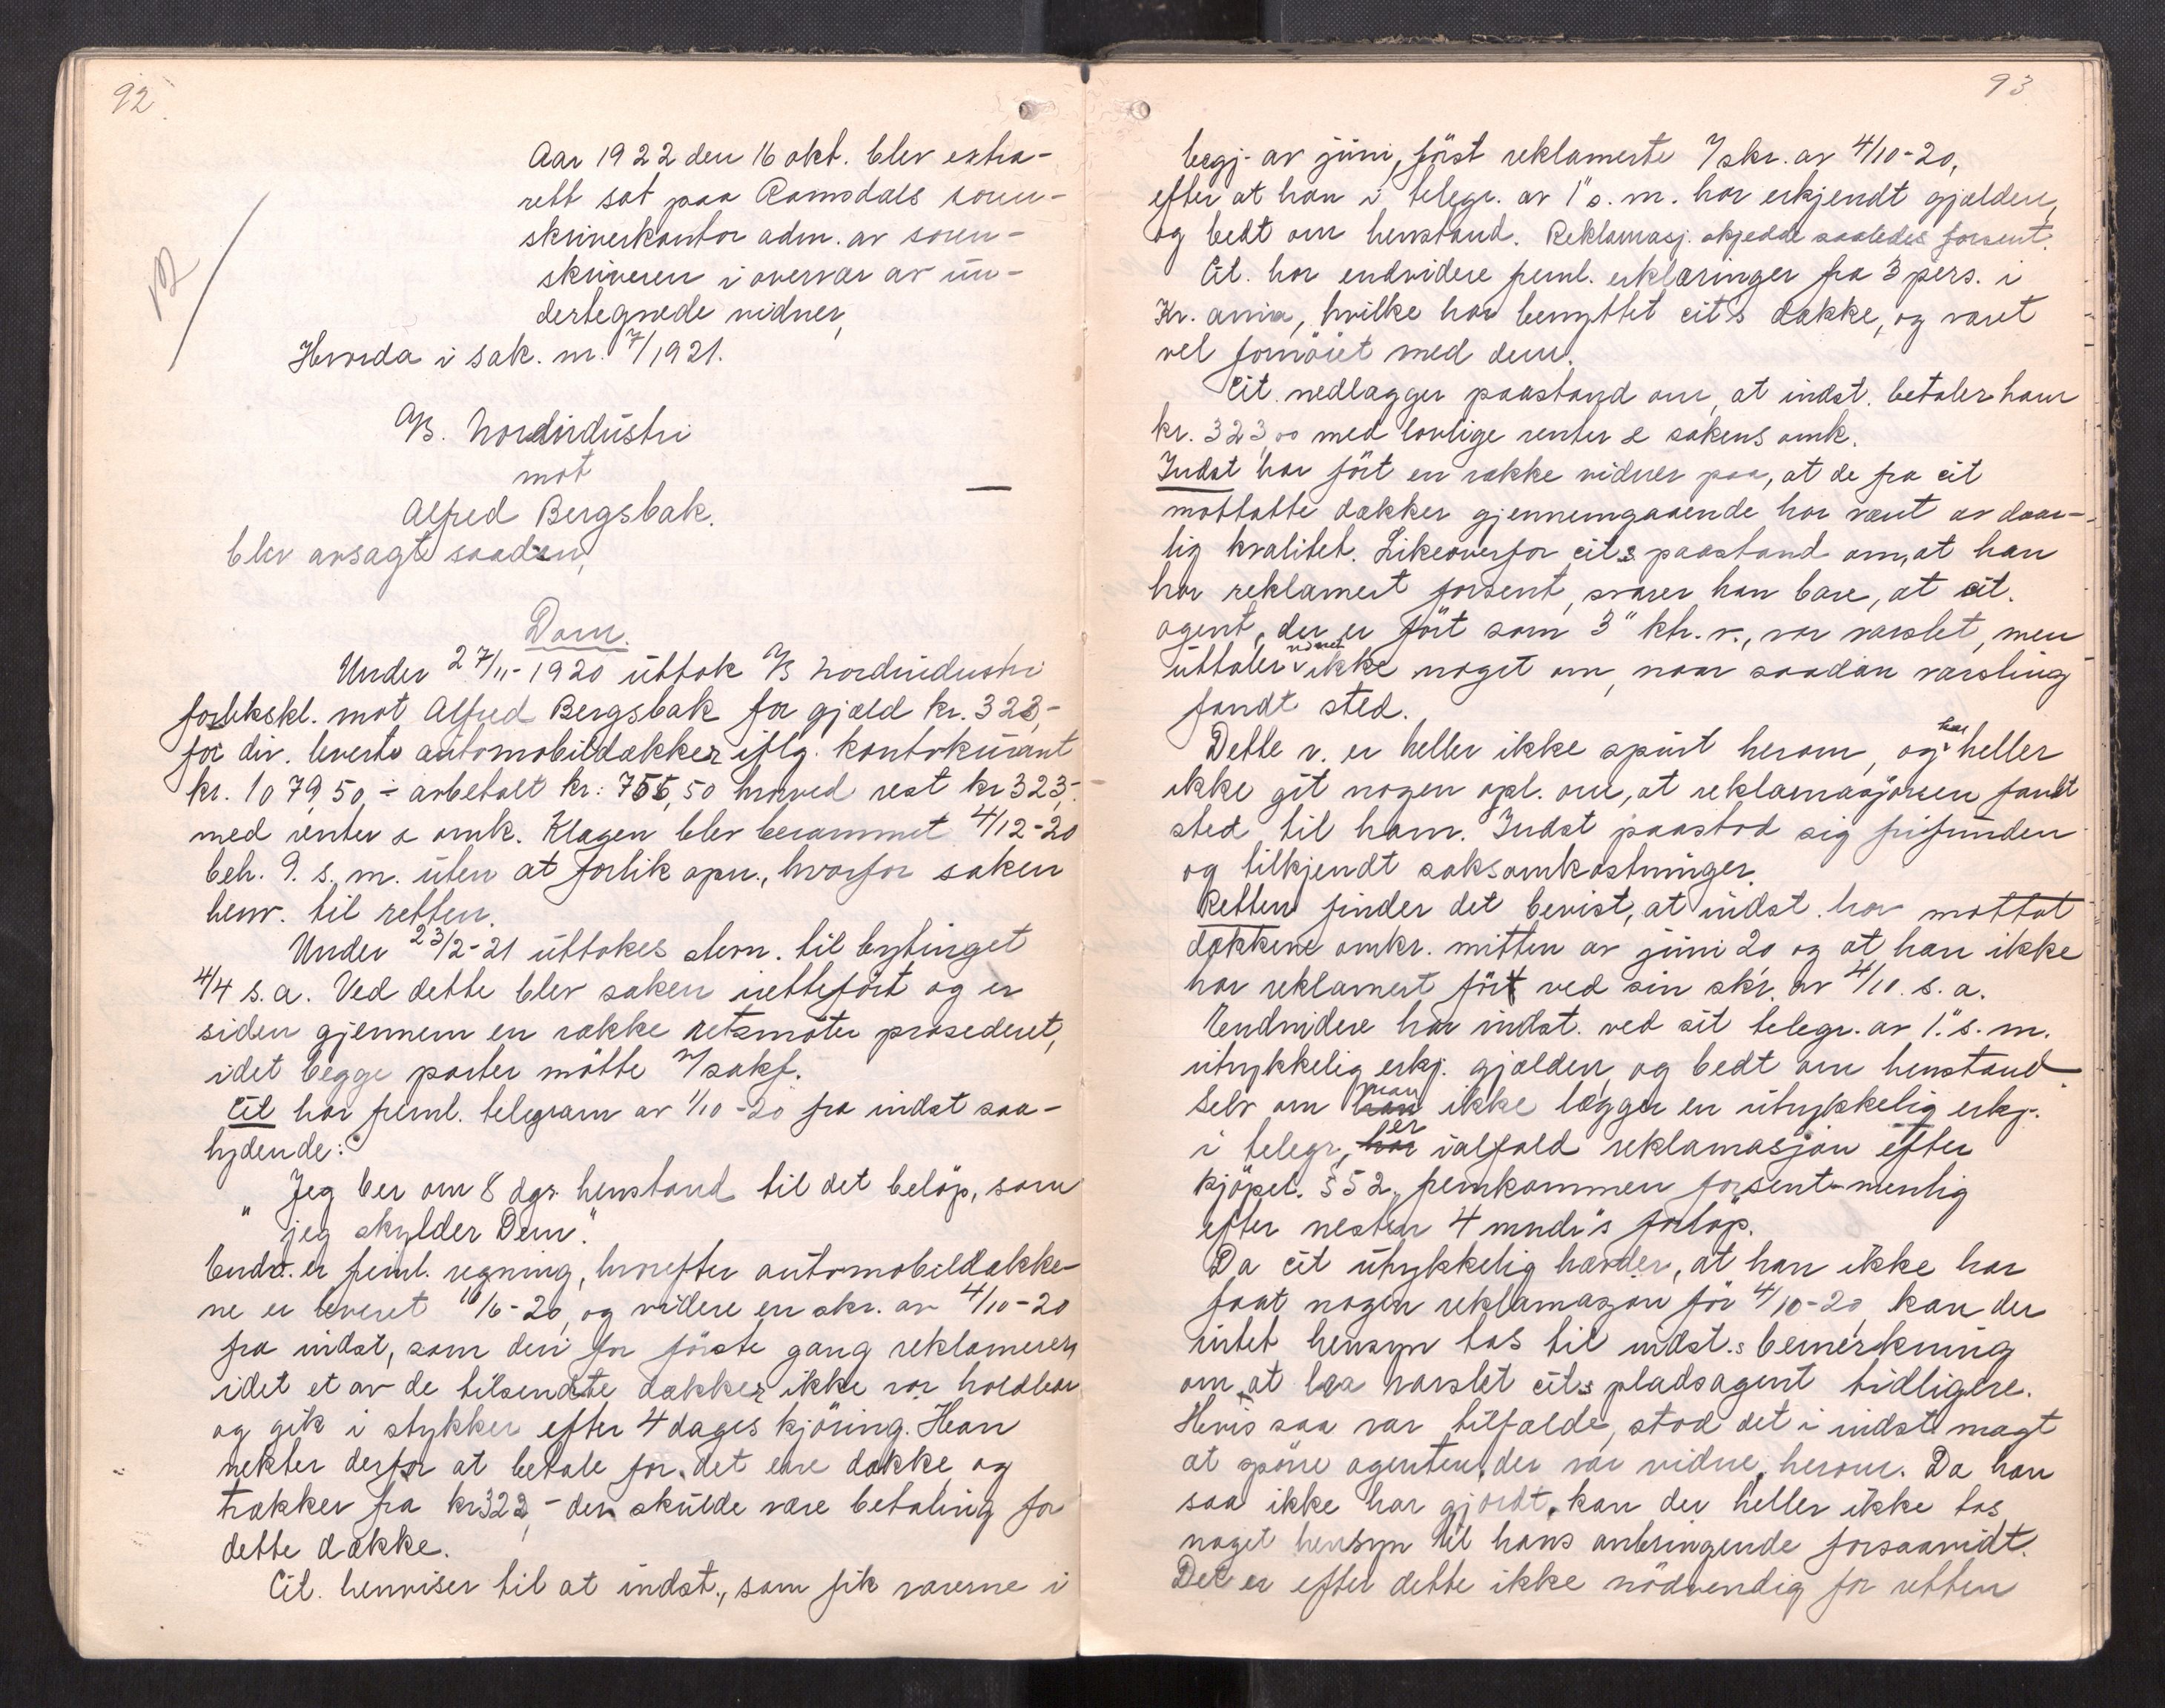 92
Aar 1922 den 16 okt. blev extra-
rett sat paa Romsdals soren-
skriverkontor adm. av soren-
skriveren i overvær av un-
dertegnede vidner,
Hvorda i sak. nr. 7/1921.
A/S. Nordindustri
mot
Alfred Bergsbak.
blev avsagt saadan
Dom.
Under 27/11-1920 uttok A/S Nordindustri
forlikskl. mot Alfred Bergsbak for gjæld kr. 323,-
for div. leverte automobildækker iflg. kontokurant
kr. 1079,50, ÷ avbetalt kr: 756,50 hvorved rest kr 323,-
med renter & omk. Klagen blev berammet 4/12-20
beh. 9. s. m. uten at forlik opn., hvorfor saken
henv. til retten.
Under 23/2-21 uttokes stevn. til bytinget
4/4 s.a. Ved dette blev saken iretteført og er
siden gjennem en række retsmøter prosederet,
idet begge parter møtte v/sakf.
Cit har freml. telegram av 1/10-20 fra indst saa-
lydende:
" Jeg ber om 8 dgs. henstand til det beløp, som
" jeg skylder Dem".
Endv. er freml. regning, hvorefter automobildække-
ne er leveret 16/6-20, og videre en skr. av 4/10-20
fra indst, som deri for første gang reklamerer,
idet et av de tilsendte dækker ikke var holdbar
og gik i stykker efter 4 dages kjøring. Han
nekter derfor at betale for det ene dække og
trækker fra kr 322,- der skulde være betaling for
dette dække.
Cit. henviser til at indst., som fik varerne i
93
begj. av juni, først reklamerte v/skr. av 4/10-20,
efter at han i telegr. av 1" s. m. har erkjendt gjælden,
og bedt om henstand. Reklamasj. skjedde saaledes forsent.
Cit. har endvidere freml. erklæringer fra 3 pers. i
Kr.ania, hvilke har benyttet cit's dække, og været
vel fornøiet med dem.
Cit. nedlægger paastand om, at indst. betaler ham
kr. 323,00 med lovlige renter & sakens omk.
Indst har ført en række vidner paa, at de fra cit
mottatte dækker gjennemgaaende har været av daar-
lig kvalitet. Likeoverfor cit.s paastand om, at han
har reklamert forsent, svarer han bare, at cit.
agent, der er ført som 3" kh. v., var varslet, men
uttaler vidnet ikke noget om, naar saadan varsling
fandt sted.
Dette v. er heller ikke spurt herom, og har heller
ikke git nogen opl. om, at reklamasjonen fandt
sted til ham. Indst paastod sig frifunden
og tilkjendt saksomkostninger.
Retten finder det bevist, at indst. har mottat
dækkene omkr. mitten av juni 20 og at han ikke
har reklamert før ved sin skr. av 4/10. s. a.
Endvidere har indst. ved sit telegr. av 1." s. m.
utrykkelig erkj. gjælden, og bedt om henstand.
Selv om man ikke lægger en utrykkelig erkj.
i telegr, er ialfald reklamasjon efter
kjøpel. § 52 fremkommen forsent nemlig
efter nesten 4 mndr's forløp.
Da cit utrykkelig hævder, at han ikke har
faat nogen reklamasjon før 4/10-20, kan der
intet hensyn tas til indst.s bemerkning
om at ha varslet cit.s pladsagent tidligere.
Hvis saa var tilfælde, stod det i indst magt
at spørre agenten, der var vidne, herom. Da han
saa ikke har gjordt, kan der heller ikke tas
noget hensyn til hans anbringende forsaavidt.
Det er efter dette ikke nødvendig for retten